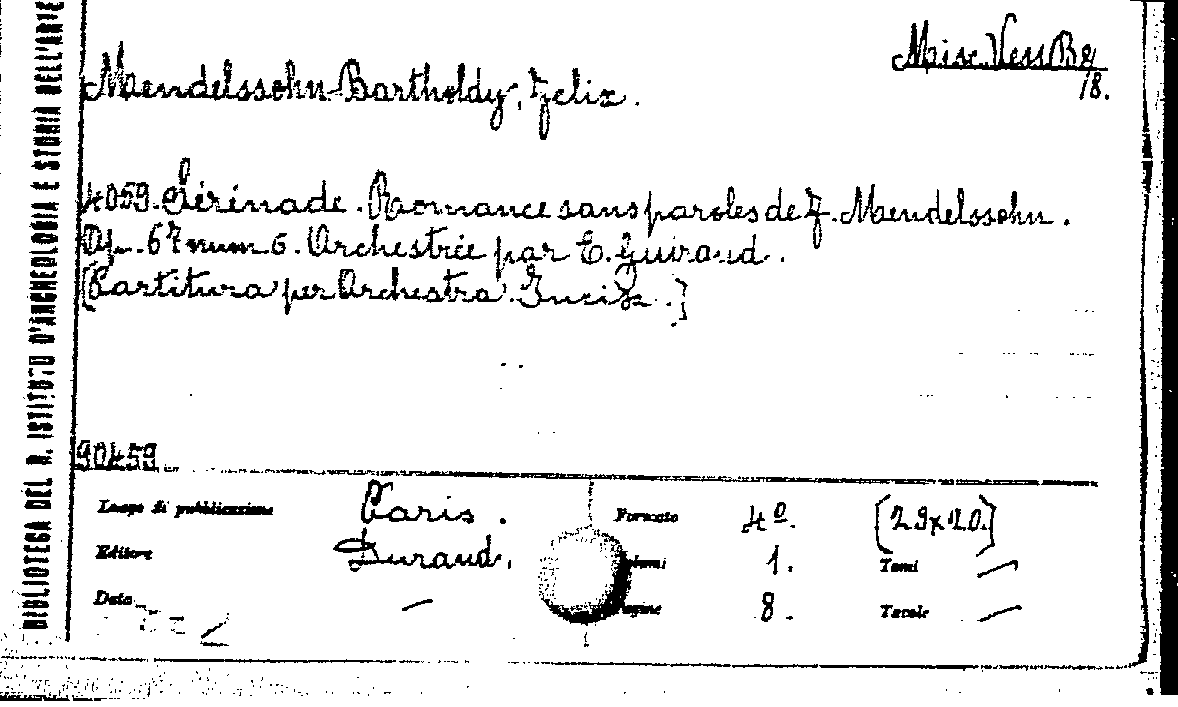 Misc. Vess B8
18.
Mendelssohn-Bartholdy, Felix.
4059. Sérénade. Romance sans paroles de F. Mendelssohn.
Op. 67 num 6. Orchestrée par E. Guiraud.
[Partitura per Orchestra.
90459
Luogo di pubblicazione Paris. Formato 4º. [29x20.]
Editore Durand. Volumi 1. Tomi —
Data — Pagine 8. Tavole —
BIBLIOTECA DEL R. ISTITUTO D'ARCHEOLOGIA E STORIA DELL'ARTE